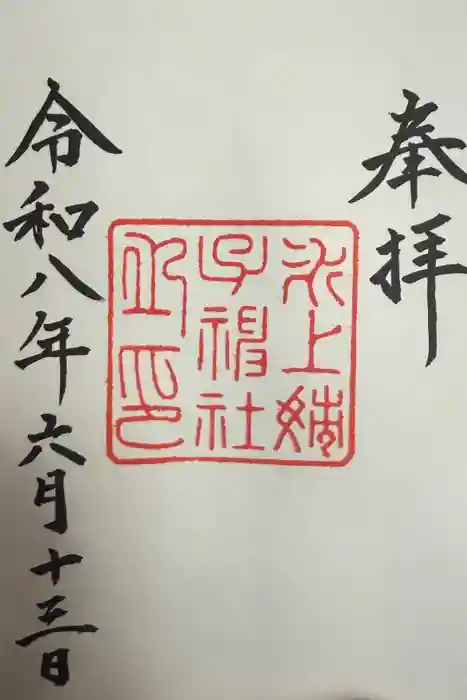 奉拝
氷上姉
子神社
印
令和八年六月十三日